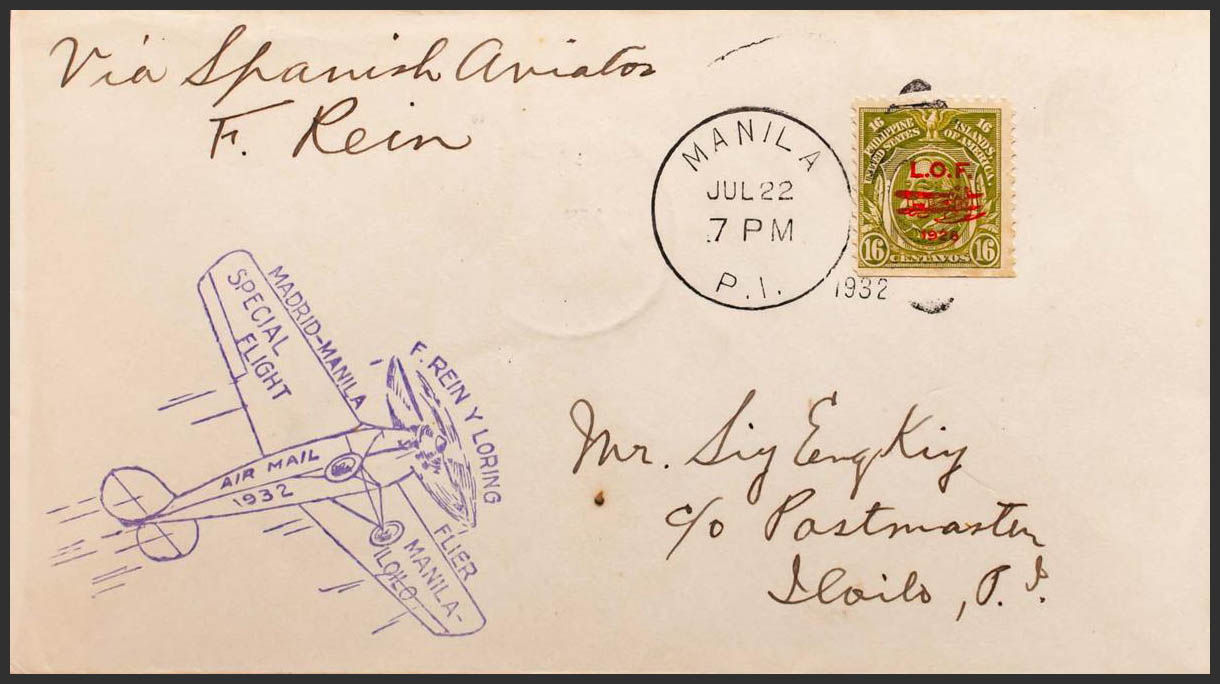 Via Spanish Aviator
F. Rein
MANILA
JUL 22
7 PM
P.I.
1932
16 16
PHILIPPINE ISLANDS
UNITED STATES OF AMERICA
L.O.F.
1926
16 CENTAVOS 16
MADRID-MANILA
SPECIAL
FLIGHT
F. REIN Y LORING
AIR MAIL
1932
FLIER
MANILA-
ILOILO
Mr. Siy Eng Kiy
c/o Postmaster
Iloilo, P.I.